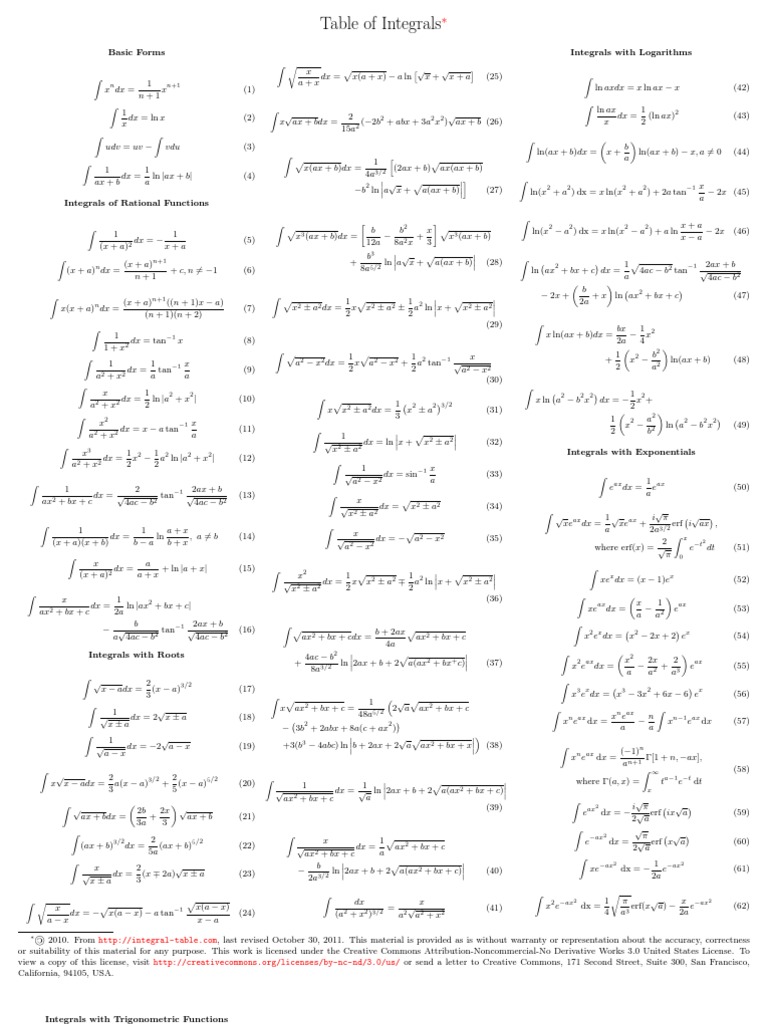 Table of Integrals*
Basic Forms
∫ xⁿdx = 1/(n+1) xⁿ⁺¹ (1)
∫ 1/x dx = ln x (2)
∫ udv = uv − ∫ vdu (3)
∫ 1/(ax+b) dx = 1/a ln |ax + b| (4)
Integrals of Rational Functions
∫ 1/(x+a)² dx = − 1/(x+a) (5)
∫ (x + a)ⁿdx = (x+a)ⁿ⁺¹/(n+1) + c, n ≠ −1 (6)
∫ x(x + a)ⁿdx = (x+a)ⁿ⁺¹((n+1)x−a)/((n+1)(n+2)) (7)
∫ 1/(1+x²) dx = tan⁻¹ x (8)
∫ 1/(a²+x²) dx = 1/a tan⁻¹ x/a (9)
∫ x/(a²+x²) dx = 1/2 ln |a² + x²| (10)
∫ x²/(a²+x²) dx = x − a tan⁻¹ x/a (11)
∫ x³/(a²+x²) dx = 1/2 x² − 1/2 a² ln |a² + x²| (12)
∫ 1/(ax²+bx+c) dx = 2/√(4ac−b²) tan⁻¹ (2ax+b)/√(4ac−b²) (13)
∫ 1/((x+a)(x+b)) dx = 1/(b−a) ln (a+x)/(b+x), a ≠ b (14)
∫ x/(x+a)² dx = a/(a+x) + ln |a + x| (15)
∫ x/(ax²+bx+c) dx = 1/2a ln |ax² + bx + c|
− b/(a√(4ac−b²)) tan⁻¹ (2ax+b)/√(4ac−b²) (16)
Integrals with Roots
∫ √(x−a) dx = 2/3 (x − a)^(3/2) (17)
∫ 1/√(x±a) dx = 2√(x±a) (18)
∫ 1/√(a−x) dx = −2√(a−x) (19)
∫ x√(x−a) dx = 2/3 a(x − a)^(3/2) + 2/5 (x − a)^(5/2) (20)
∫ √(ax+b) dx = (2b/3a + 2x/3) √(ax+b) (21)
∫ (ax + b)^(3/2) dx = 2/5a (ax + b)^(5/2) (22)
∫ x/√(x±a) dx = 2/3 (x ∓ 2a)√(x±a) (23)
∫ √(x/(a−x)) dx = −√(x(a−x)) − a tan⁻¹ √(x(a−x))/(x−a) (24)
∫ √(x/(a+x)) dx = √(x(a+x)) − a ln [√x + √(x+a)] (25)
∫ x√(ax+b) dx = 2/15a² (−2b² + abx + 3a²x²)√(ax+b) (26)
∫ √(x(ax+b)) dx = 1/4a^(3/2) [(2ax + b)√(ax(ax+b))
−b² ln |a√x + √(a(ax+b))|] (27)
∫ √(x³(ax+b)) dx = [b/12a − b²/8a²x + x/3] √(x³(ax+b))
+ b³/8a^(5/2) ln |a√x + √(a(ax+b))| (28)
∫ √(x²±a²) dx = 1/2 x√(x²±a²) ± 1/2 a² ln |x + √(x²±a²)|
(29)
∫ √(a²−x²) dx = 1/2 x√(a²−x²) + 1/2 a² tan⁻¹ x/√(a²−x²)
(30)
∫ x√(x²±a²) dx = 1/3 (x² ± a²)^(3/2) (31)
∫ 1/√(x²±a²) dx = ln |x + √(x²±a²)| (32)
∫ 1/√(a²−x²) dx = sin⁻¹ x/a (33)
∫ x/√(x²±a²) dx = √(x²±a²) (34)
∫ x/√(a²−x²) dx = −√(a²−x²) (35)
∫ x²/√(x²±a²) dx = 1/2 x√(x²±a²) ∓ 1/2 a² ln |x + √(x²±a²)|
(36)
∫ √(ax²+bx+c) dx = (b+2ax)/4a √(ax²+bx+c)
+ (4ac−b²)/8a^(3/2) ln |2ax + b + 2√(a(ax²+bx⁺c))| (37)
∫ x√(ax²+bx+c) = 1/48a^(5/2) (2√a√(ax²+bx+c)
− (3b² + 2abx + 8a(c + ax²))
+3(b³ − 4abc) ln |b + 2ax + 2√a√(ax²+bx+x)|) (38)
∫ 1/√(ax²+bx+c) dx = 1/√a ln |2ax + b + 2√(a(ax²+bx+c))|
(39)
∫ x/√(ax²+bx+c) dx = 1/a √(ax²+bx+c)
− b/2a^(3/2) ln |2ax + b + 2√(a(ax²+bx+c))| (40)
∫ dx/(a²+x²)^(3/2) = x/(a²√(a²+x²)) (41)
Integrals with Logarithms
∫ ln axdx = x ln ax − x (42)
∫ ln ax/x dx = 1/2 (ln ax)² (43)
∫ ln(ax + b)dx = (x + b/a) ln(ax + b) − x, a ≠ 0 (44)
∫ ln(x² + a²) dx = x ln(x² + a²) + 2a tan⁻¹ x/a − 2x (45)
∫ ln(x² − a²) dx = x ln(x² − a²) + a ln (x+a)/(x−a) − 2x (46)
∫ ln (ax² + bx + c) dx = 1/a √(4ac−b²) tan⁻¹ (2ax+b)/√(4ac−b²)
− 2x + (b/2a + x) ln (ax² + bx + c) (47)
∫ x ln(ax + b)dx = bx/2a − 1/4 x²
+ 1/2 (x² − b²/a²) ln(ax + b) (48)
∫ x ln (a² − b²x²) dx = −1/2 x²+
1/2 (x² − a²/b²) ln (a² − b²x²) (49)
Integrals with Exponentials
∫ e^(ax) dx = 1/a e^(ax) (50)
∫ √x e^(ax) dx = 1/a √x e^(ax) + i√π/2a^(3/2) erf (i√(ax)),
where erf(x) = 2/√π ∫₀ˣ e^(−t²) dt (51)
∫ xeˣdx = (x − 1)eˣ (52)
∫ xe^(ax) dx = (x/a − 1/a²) e^(ax) (53)
∫ x²eˣdx = (x² − 2x + 2) eˣ (54)
∫ x²e^(ax) dx = (x²/a − 2x/a² + 2/a³) e^(ax) (55)
∫ x³eˣdx = (x³ − 3x² + 6x − 6) eˣ (56)
∫ xⁿe^(ax) dx = xⁿe^(ax)/a − n/a ∫ xⁿ⁻¹e^(ax) dx (57)
∫ xⁿe^(ax) dx = (−1)ⁿ/aⁿ⁺¹ Γ[1 + n, −ax],
where Γ(a, x) = ∫ₓ^∞ t^(a−1)e^(−t) dt (58)
∫ e^(ax²) dx = − i√π/2√a erf (ix√a) (59)
∫ e^(−ax²) dx = √π/2√a erf (x√a) (60)
∫ xe^(−ax²) dx = − 1/2a e^(−ax²) (61)
∫ x²e^(−ax²) dx = 1/4 √(π/a³) erf(x√a) − x/2a e^(−ax²) (62)
* 2010. From http://integral-table.com, last revised October 30, 2011. This material is provided as is without warranty or representation about the accuracy, correctness
or suitability of this material for any purpose. This work is licensed under the Creative Commons Attribution-Noncommercial-No Derivative Works 3.0 United States License. To
view a copy of this license, visit http://creativecommons.org/licenses/by-nc-nd/3.0/us/ or send a letter to Creative Commons, 171 Second Street, Suite 300, San Francisco,
California, 94105, USA.
Integrals with Trigonometric Functions